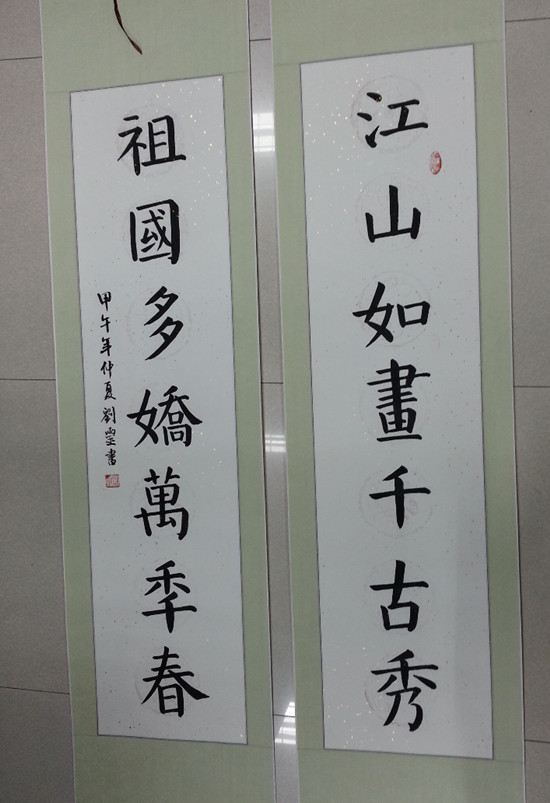 江山如畫千古秀
祖國多嬌萬秊春
甲午年仲夏劉書